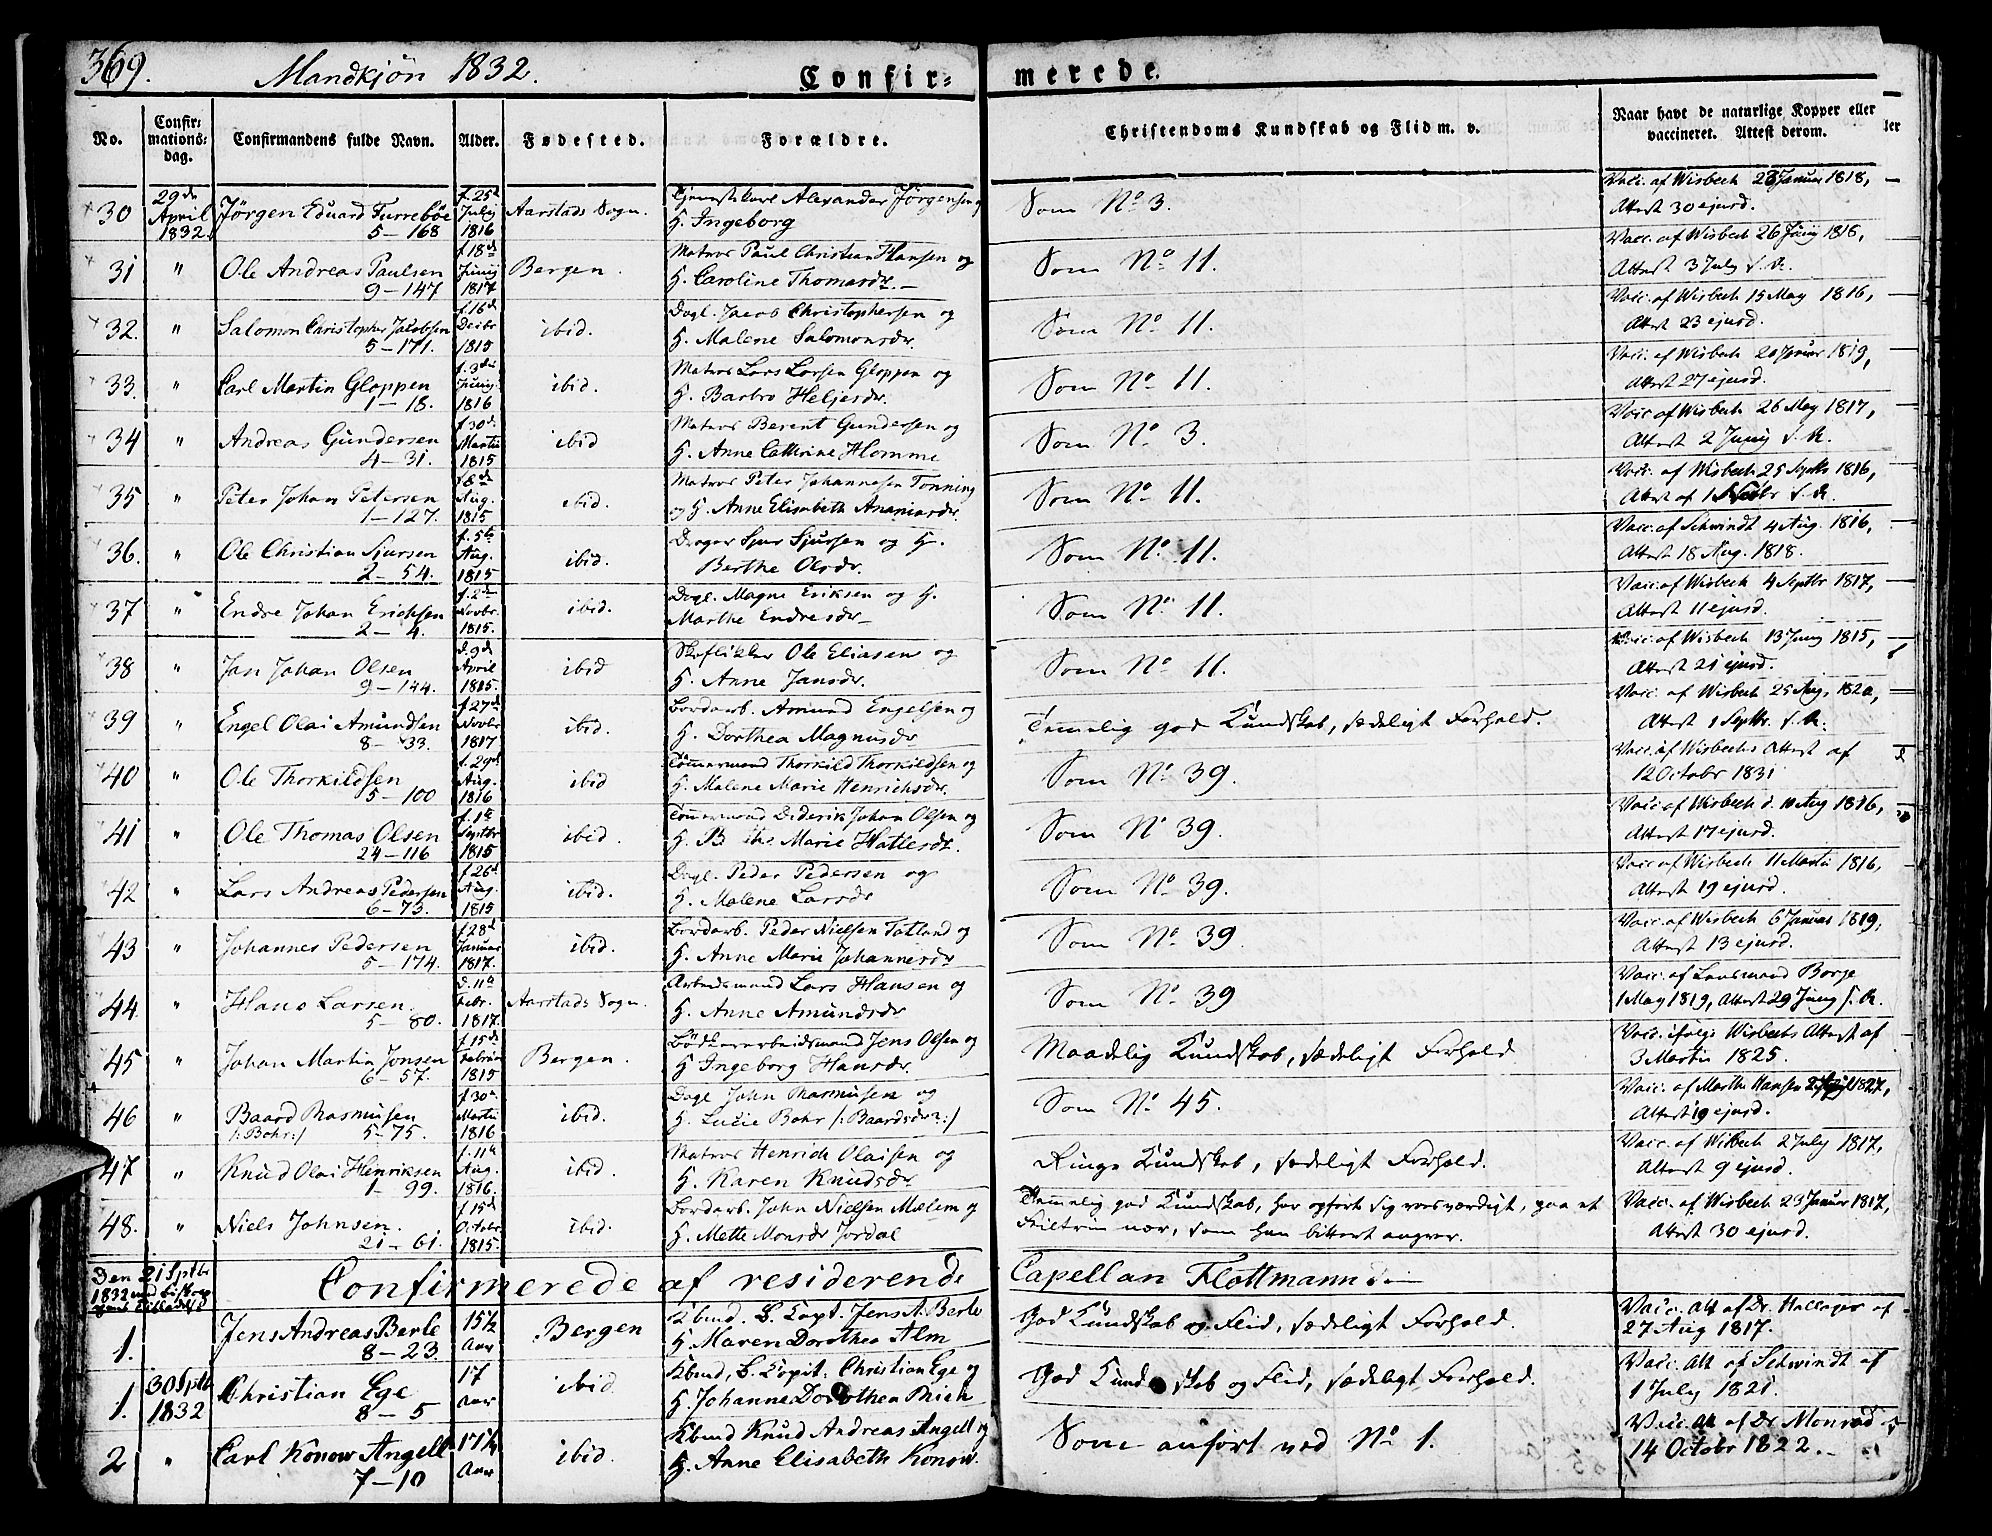 369. Mandkjøn 1832. Confir= merede.
No. Confir= mations= dag. Confirmandens fulde Navn. Alder. Fødested. Forældre. Christendoms Kundskab og Flid m. v. Naar havt de naturlige Kopper eller vaccineret. Attest derom.
30 29de April 1832. Jørgen Eduard Furrebøe 5-168 f. 25d July 1816 Aarstads Sogn. Alexander Jørgensen og H. Ingeborg Som No 3. Vacc. af Wisbech 28 Januar 1818, Attest 30 ejusd.
31 " Ole Andreas Paulsen 9-147 f. 18d Junij 1817 Bergen. Matros Paul Christian Hansen og H. Caroline Thomasdr. Som No 11. Vacc. af Wisbech 26 Junij 1818, Attest 3 July s. A.
32. " Salomon Christopher Jacobsen 5-171. f. 16d Decbr 1815 ibid. Dagl. Jacob Christophersen og H. Malene Salomonsdr. Som No 11. Vacc. af Wisbech 15 May 1816, Attest 23 ejusd.
33. " Carl Martin Gloppen 1-18. f. 3die Junij 1816 ibid. Matros Lars Larsen Gloppen og H. Barbro Heljesdr. Som No 11. Vacc. af Wisbech 20 Januar 1819, Attest 27 ejusd.
34 " Andreas Gundersen 4-31. f. 30d Martii 1815 ibid Matros Berent Gundersen og H. Anne Cathrine Homme Som No 3. Vacc af Wisbech 26 May 1817, Attest 2 Junij s. A.
35 " Peter Johan Petersen 1-127. f. 8de Aug. 1815 ibid. Matros Peter Johannesen Tonning og H. Anne Elisabeth Ananiasdr. Som No 11. Vacc. af Wisbech 25 Septbr 1816, Attest af 1 s. A.
36. " Ole Christian Sjursen 2-54. f. 5te Aug. 1815 ibid. Drager Sjur Sjursen og H. Berthe Olsdr. Som No 11. Vacc. af Schwindt 4 Aug. 1816, Attest 18 Aug. 1818.
37 " Endre Johan Erichsen 2-4. f. 2de Novbr. 1815. ibid. Dagl. Magne Eriksen og H. Marthe Endresdr Som No 11. Vacc. af Wisbech 4 Septbr 1817, Attest 11 ejusd.
38 " Jan Johan Olsen 9-144. d. 9d April 1815. ibid Skoflikker Ole Eliasen og H. Anne Jansdr. Som No 11. Vacc. af Wisbech 13 Junij 1815, Attest 21 ejusd.
39 " Engel Olai Amundsen 8-33. f. 27d Novbr 1817 ibid. Bordarb. Amund Engelsen og H. Dorthea Magnusdr Temmelig god Kundskab, sædeligt Forhold. Vacc. af Wisbech 25 Aug. 1820, Attest 1 Septbr. s. A.
40 " Ole Thorkildsen 5-100 f. 29d Aug. 1816 ibid Tømmermand Thorkild Thorkildsen og H. Malene Marie Henriksdr. Som No 39. Vacc. af Wisbechs Attest af 12 Octobr 1831
41 " Ole Thomas Olsen 24-116 f. 1te Septbr 1815 ibid. Tømmermand Diderik Johan Olsen og H. Marie Hattesdr. Som No 39. Vacc af Wisbech d. 10 Aug 1816, Attest 17 ejusd.
42 " Lars Andreas Pedersen 6-73. f. 26d Aug. 1815 ibid. Dagl. Peder Pedersen og H. Malene Larsdr Som No 39. Vacc af Wisbech 11 Martii 1816, Attest 19 ejusd.
43 " Johannes Pedersen 5-174. f. 28d Januar 1817. ibid. Bordarb. Peder Nielsen Totland og H. Anne Marie Johannesdr Som No 39. Vacc. af Wisbech 6 Januar 1819, Attest 13 ejusd.
44. " Hans Larsen. 5-80. d. 11te Febr. 1817. Aarstads Sogn. Arbeidsmand Lars Hansen og H. Anne Amundsdr Som No 39 Vacc. af Lensmand Borge 1 May 1819, Attest 29 Junij s. A.
45 " Johan Martin Jonsen 6-57. f. 15d Febrin 1815 Bergen. Bødkerarbeidsmand Jens Olsen og H Ingeborg Hansdr. Maadelig Kundskab, sædeligt Forhold Vacc. ifølge Wisbechs Attest af 3 Martii 1825.
46 " Baard Rasmusen /: Bohr :/ 5-75. f. 30d Martii 1816 ibid. Dagl John Rasmusen og H. Lucie Bohr /: Baardsdr :/ Som No 45. Vacc. af Marthe Hansen 1827, Attest 19 ejusd.
47 " Knud Olai Henriksen 1-99. f. 11te Aug. 1816. ibid. Matros Henrich Olaisen og H. Karen Knudsdr Ringe Kundskab, sædeligt Forhold. Vacc. af Wisbech 2 July 1817, Attest 9 ejusd.
48. " Niels Johnsen. 21-61. f. 15d Octobr 1815. ibid. Bordarb. John Nielsen Mælem og H. Mette Monsdr Jordal Temmelig god Kundskab, har opført sig nær, som han bittert angrer. Vacc. af Wisbech 23 Januar 1817, Attest 30 ejusd.
Den 21 Sptbr 1832 Confirmerede af residerende Capellan Flottmann
1. Jens Andreas Berle 8-23. 15½ Aar Bergen Kbmd. B. Capt. Jens A. Berle H Maren Dorothea Alm God Kundskab og Flid, sædeligt Forhold. Vacc. Att af Dr. Hallager af 27 Aug 1817.
1. 30 Sptbr 1832 Christian Ege 8-5 17 Aar ibid Kbmd, B. Capit. Christian Ege og H. Johanne Dorothea Rieck God Kundskab og Flid, sædeligt Forhold. Vacc. Att af Schwindt af 1 July 1821.
2 " Carl Konow Angell 7-10 17¼ Aar ibid. Kbmd Knud Andreas Angell og H. Anne Elisabeth Konow. Som anført ved No 1. Vacc. Att af Dr. Monrad af 14 Octobr 1822.